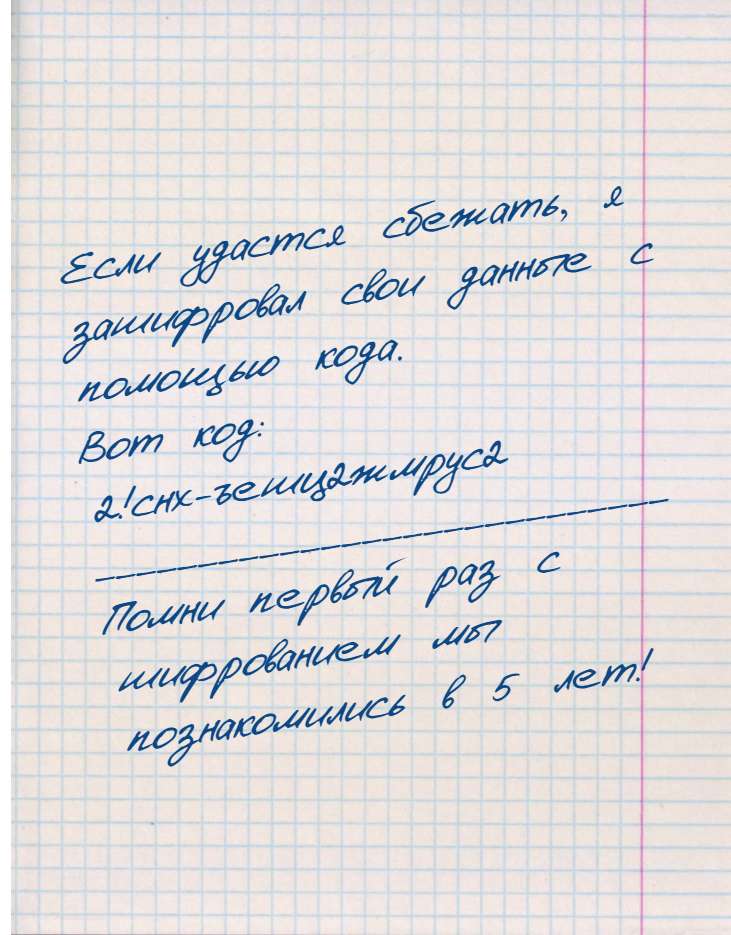 Если удастся сбежать, я
зашифровал свои данные с
помощью кода.
Вот код:
2!снх-ъешц2жмрус2
Помни первый раз с
шифрованием мы
познакомились в 5 лет!